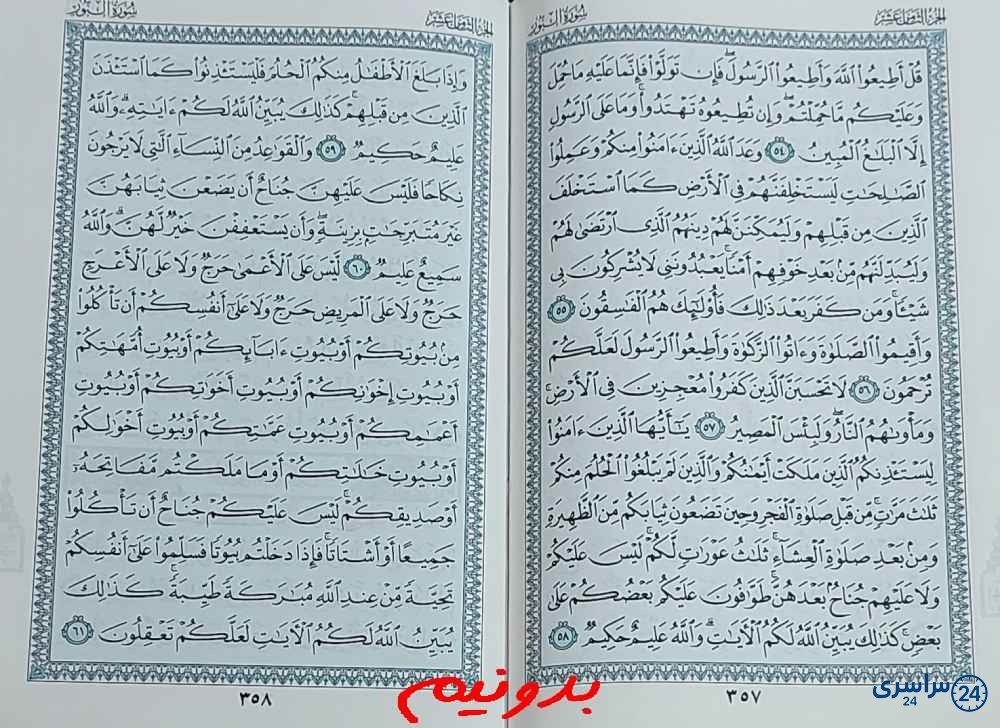 الجزء الثامن عشر
سورة النور
قُلْ أَطِيعُوا۟ ٱللَّهَ وَأَطِيعُوا۟ ٱلرَّسُولَ ۖ فَإِن تَوَلَّوْا۟ فَإِنَّمَا عَلَيْهِ مَا حُمِّلَ
وَعَلَيْكُم مَّا حُمِّلْتُمْ ۖ وَإِن تُطِيعُوهُ تَهْتَدُوا۟ ۚ وَمَا عَلَى ٱلرَّسُولِ
إِلَّا ٱلْبَلَٰغُ ٱلْمُبِينُ ٥٤ وَعَدَ ٱللَّهُ ٱلَّذِينَ ءَامَنُوا۟ مِنكُمْ وَعَمِلُوا۟
ٱلصَّٰلِحَٰتِ لَيَسْتَخْلِفَنَّهُمْ فِى ٱلْأَرْضِ كَمَا ٱسْتَخْلَفَ
ٱلَّذِينَ مِن قَبْلِهِمْ وَلَيُمَكِّنَنَّ لَهُمْ دِينَهُمُ ٱلَّذِى ٱرْتَضَىٰ لَهُمْ
وَلَيُبَدِّلَنَّهُم مِّنۢ بَعْدِ خَوْفِهِمْ أَمْنًا ۚ يَعْبُدُونَنِى لَا يُشْرِكُونَ بِى
شَيْـًٔا ۚ وَمَن كَفَرَ بَعْدَ ذَٰلِكَ فَأُو۟لَٰٓئِكَ هُمُ ٱلْفَٰسِقُونَ ٥٥
وَأَقِيمُوا۟ ٱلصَّلَوٰةَ وَءَاتُوا۟ ٱلزَّكَوٰةَ وَأَطِيعُوا۟ ٱلرَّسُولَ لَعَلَّكُمْ
تُرْحَمُونَ ٥٦ لَا تَحْسَبَنَّ ٱلَّذِينَ كَفَرُوا۟ مُعْجِزِينَ فِى ٱلْأَرْضِ ۚ
وَمَأْوَىٰهُمُ ٱلنَّارُ ۖ وَلَبِئْسَ ٱلْمَصِيرُ ٥٧ يَٰٓأَيُّهَا ٱلَّذِينَ ءَامَنُوا۟
لِيَسْتَـْٔذِنكُمُ ٱلَّذِينَ مَلَكَتْ أَيْمَٰنُكُمْ وَٱلَّذِينَ لَمْ يَبْلُغُوا۟ ٱلْحُلُمَ مِنكُمْ
ثَلَٰثَ مَرَّٰتٍ ۚ مِّن قَبْلِ صَلَوٰةِ ٱلْفَجْرِ وَحِينَ تَضَعُونَ ثِيَابَكُم مِّنَ ٱلظَّهِيرَةِ
وَمِنۢ بَعْدِ صَلَوٰةِ ٱلْعِشَآءِ ۚ ثَلَٰثُ عَوْرَٰتٍ لَّكُمْ ۚ لَيْسَ عَلَيْكُمْ
وَلَا عَلَيْهِمْ جُنَاحٌۢ بَعْدَهُنَّ ۚ طَوَّٰفُونَ عَلَيْكُم بَعْضُكُمْ عَلَىٰ
بَعْضٍ ۚ كَذَٰلِكَ يُبَيِّنُ ٱللَّهُ لَكُمُ ٱلْءَايَٰتِ ۗ وَٱللَّهُ عَلِيمٌ حَكِيمٌ ٥٨
٣٥٧
الجزء الثامن عشر
سورة النور
وَإِذَا بَلَغَ ٱلْأَطْفَٰلُ مِنكُمُ ٱلْحُلُمَ فَلْيَسْتَـْٔذِنُوا۟ كَمَا ٱسْتَـْٔذَنَ
ٱلَّذِينَ مِن قَبْلِهِمْ ۚ كَذَٰلِكَ يُبَيِّنُ ٱللَّهُ لَكُمْ ءَايَٰتِهِۦ ۗ وَٱللَّهُ
عَلِيمٌ حَكِيمٌ ٥٩ وَٱلْقَوَٰعِدُ مِنَ ٱلنِّسَآءِ ٱلَّٰتِى لَا يَرْجُونَ
نِكَاحًا فَلَيْسَ عَلَيْهِنَّ جُنَاحٌ أَن يَضَعْنَ ثِيَابَهُنَّ
غَيْرَ مُتَبَرِّجَٰتٍۭ بِزِينَةٍ ۖ وَأَن يَسْتَعْفِفْنَ خَيْرٌ لَّهُنَّ ۗ وَٱللَّهُ
سَمِيعٌ عَلِيمٌ ٦٠ لَّيْسَ عَلَى ٱلْأَعْمَىٰ حَرَجٌ وَلَا عَلَى ٱلْأَعْرَجِ
حَرَجٌ وَلَا عَلَى ٱلْمَرِيضِ حَرَجٌ وَلَا عَلَىٰٓ أَنفُسِكُمْ أَن تَأْكُلُوا۟
مِنۢ بُيُوتِكُمْ أَوْ بُيُوتِ ءَابَآئِكُمْ أَوْ بُيُوتِ أُمَّهَٰتِكُمْ
أَوْ بُيُوتِ إِخْوَٰنِكُمْ أَوْ بُيُوتِ أَخَوَٰتِكُمْ أَوْ بُيُوتِ
أَعْمَٰمِكُمْ أَوْ بُيُوتِ عَمَّٰتِكُمْ أَوْ بُيُوتِ أَخْوَٰلِكُمْ
أَوْ بُيُوتِ خَٰلَٰتِكُمْ أَوْ مَا مَلَكْتُم مَّفَاتِحَهُۥٓ
أَوْ صَدِيقِكُمْ ۚ لَيْسَ عَلَيْكُمْ جُنَاحٌ أَن تَأْكُلُوا۟
جَمِيعًا أَوْ أَشْتَاتًا ۚ فَإِذَا دَخَلْتُم بُيُوتًا فَسَلِّمُوا۟ عَلَىٰٓ أَنفُسِكُمْ
تَحِيَّةً مِّنْ عِندِ ٱللَّهِ مُبَٰرَكَةً طَيِّبَةً ۚ كَذَٰلِكَ
يُبَيِّنُ ٱللَّهُ لَكُمُ ٱلْءَايَٰتِ لَعَلَّكُمْ تَعْقِلُونَ ٦١
٣٥٨
بدونیم
سراسری 24
24